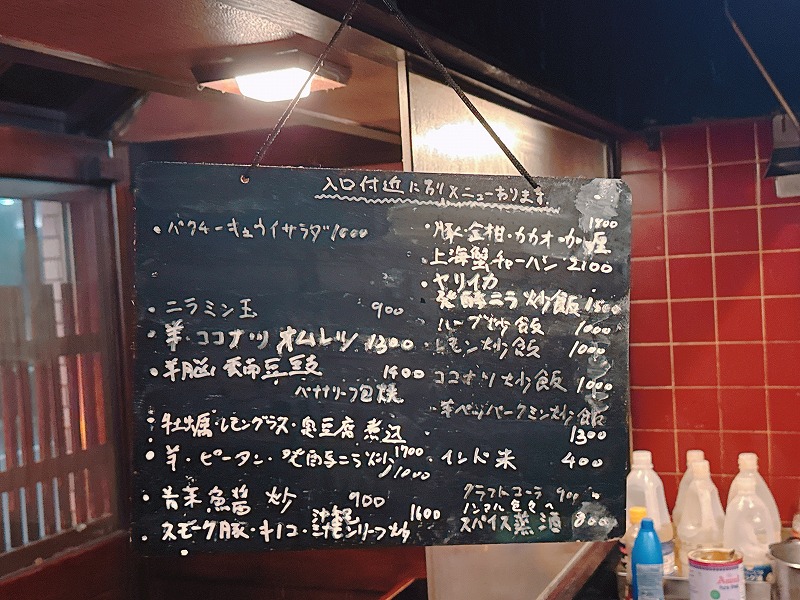 入口付近に別メニューあります
・パクチーキュウイサラダ 1000
・ニラミン玉 900
・羊・ココナツ オムレツ 1300
・羊脳 豆豉 1400
バナナリーフ包焼
・牡蠣・レモングラス・臭豆腐 煮込 1700
・羊・ピータン・発酵ニラ炒 1000
・青菜魚醤炒 900
・スモーク豚・キノコ・リーフ炒 1600
・豚・金柑・カカオ・カレー 1800
・上海蟹チャーハン 2100
・ヤリイカ
発酵ニラ炒飯 1500
ハーブ炒飯 1000
レモン炒飯 1000
ココナツ炒飯 1000
羊ペッパークミン炒飯
1300
・インド米 400
クラフトコーラ 900
ノンアル色々
スパイス蒸酒 800